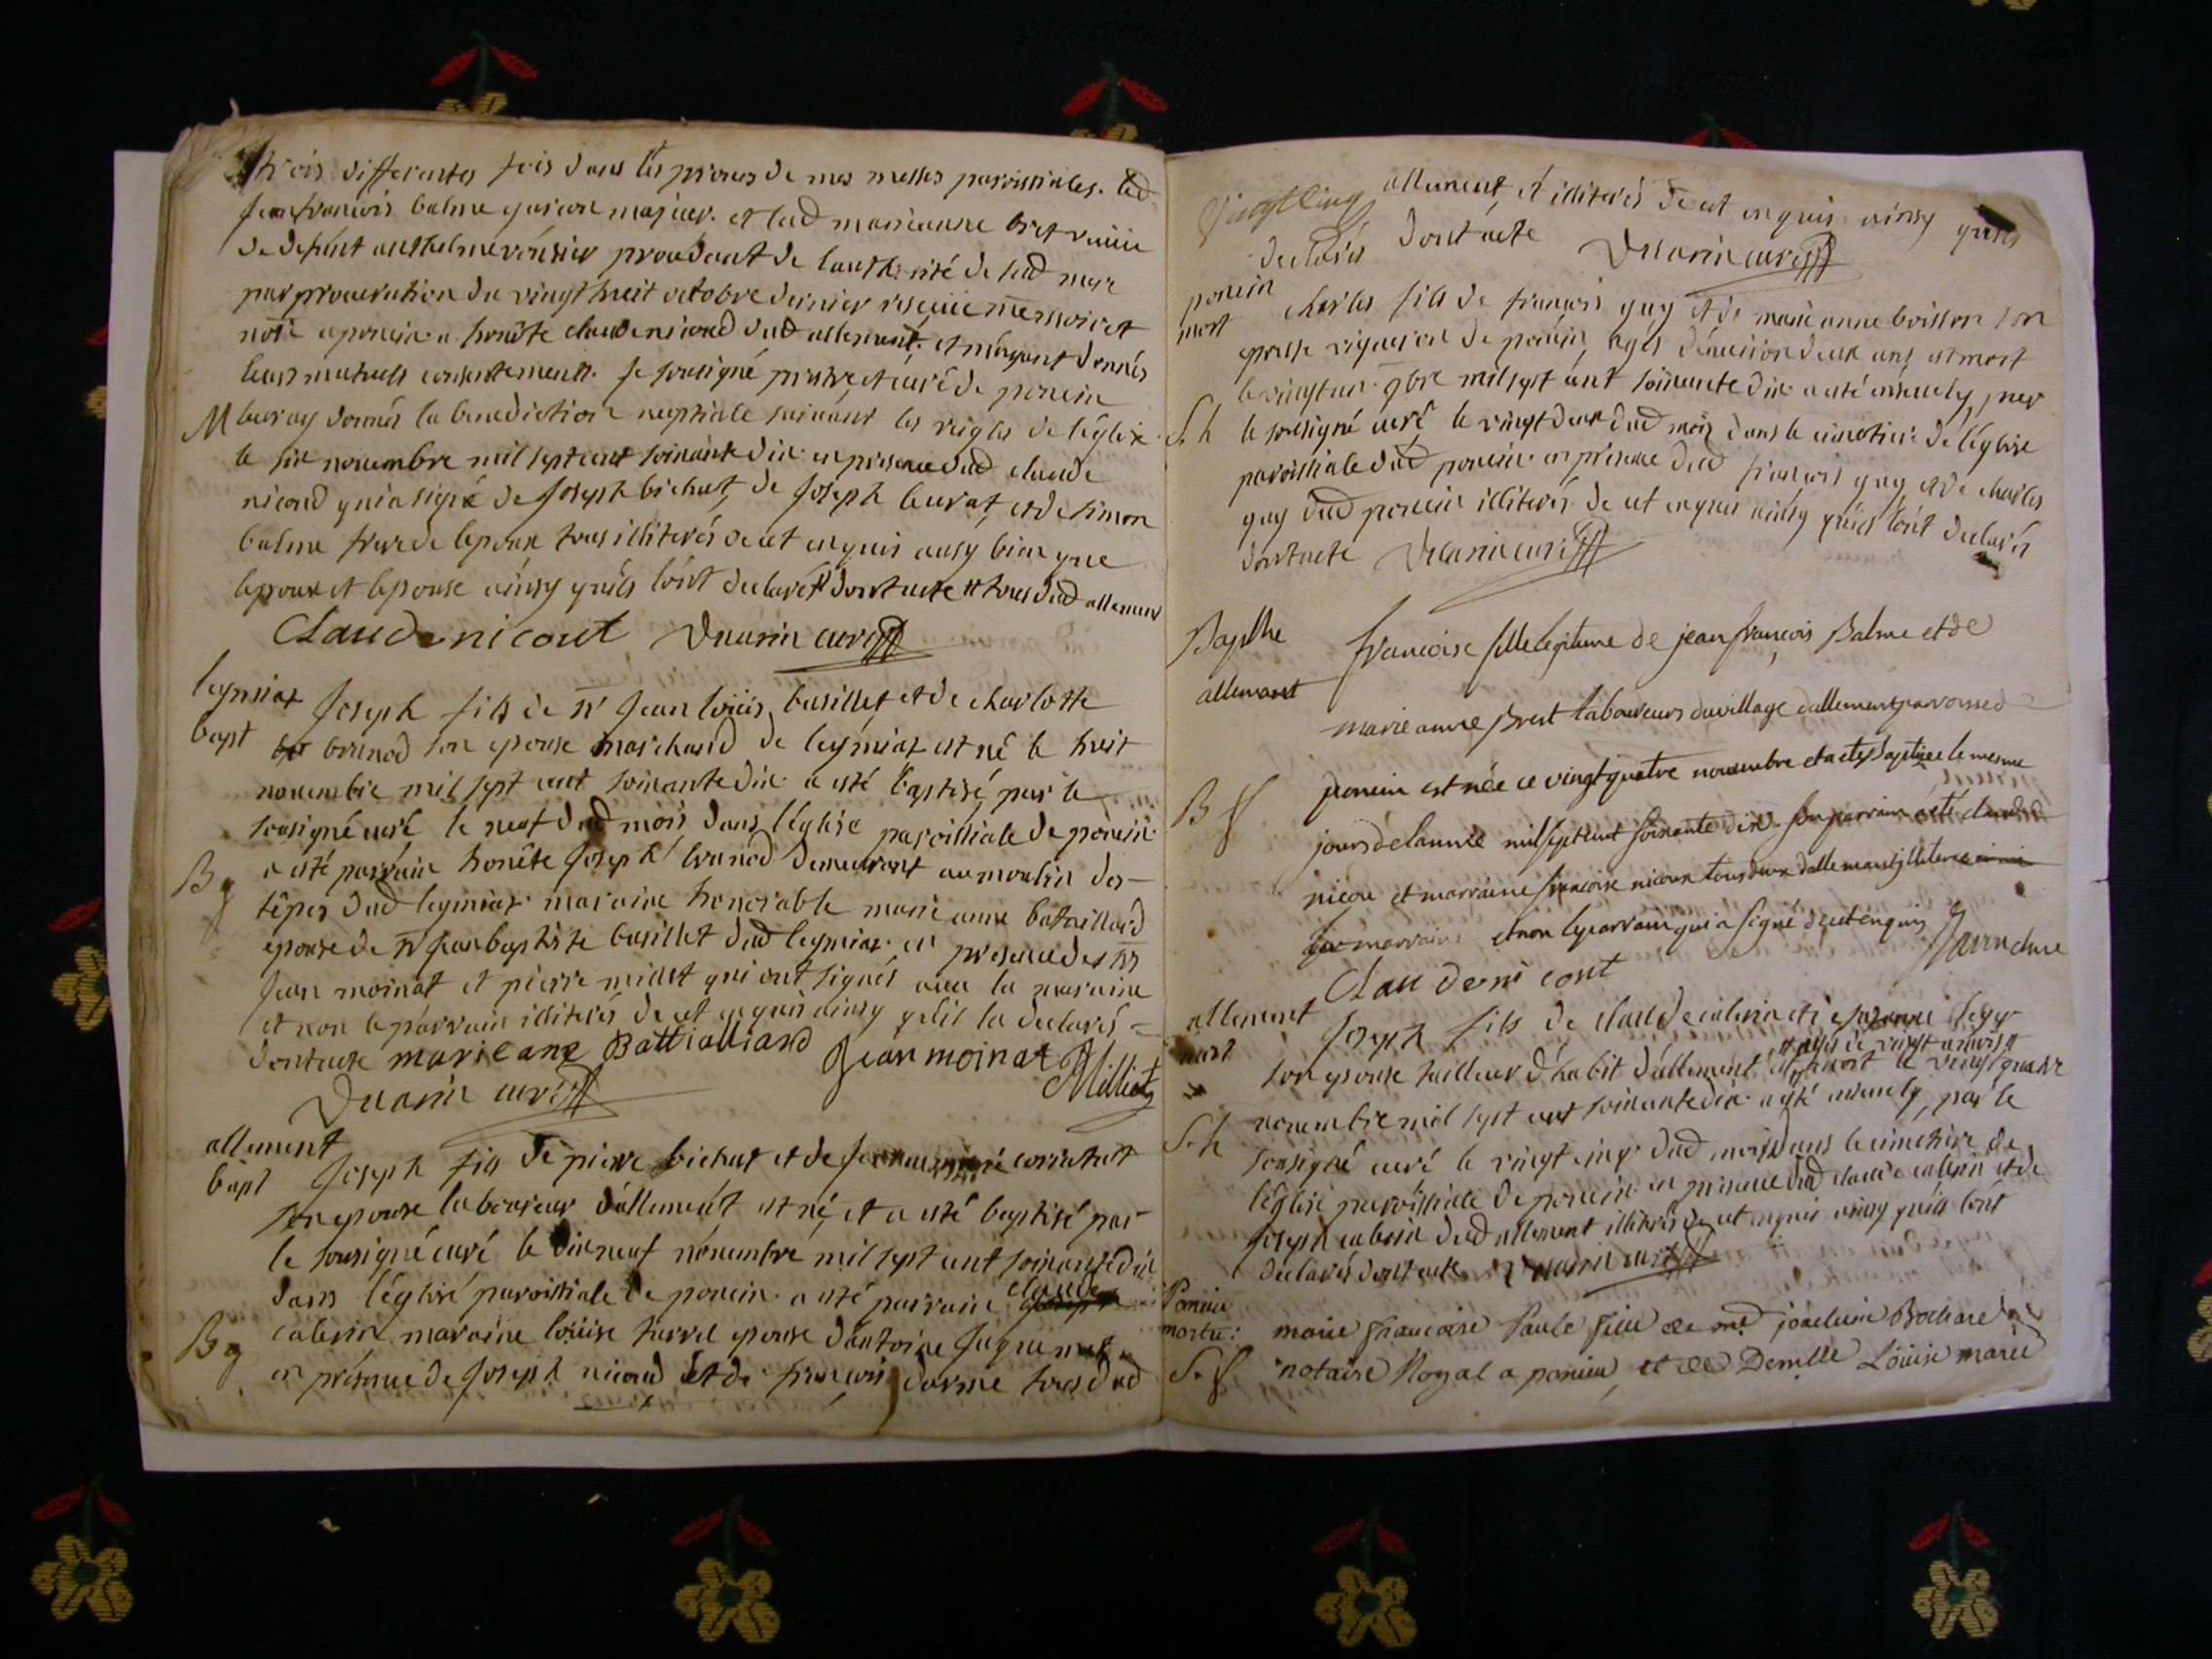 trois differentes fois dans les prones de mes messes paroissiales. led
jean francois balme garcon majeur. et lad marianne bret veuve
de defunt anthelme procedant de lauthorité de sad mere
par procuration du vingt huit octobre dernier
nore a poncin a honête claude nicoud dud allement. et mayant donnés
leurs mutuels consentements. Je sousigné pretre et curé de poncin
M leur ay donnés la benediction nuptiale suivant les reigles de léglise
le six novembre mil sept cent soixante dix en presence dud claude
nicoud qui a signé de Joseph bichat, de Joseph leurat, et de simon
balme frere de lepoux tous illiterés de ce enquis ausy bien que
lepoux et lepouse ainsy quils lont declarés dont acte # tous dud allement
Claude nicout Duarin curé
leymiat Joseph fils de sr Jean loüis busillet et de charlotte
bapt brunod son epouse marchand de leymiat est né le huit
novembre mil sept cent soixante dix a esté baptisé par le
sousigné curé le neuf dud mois dans léglise paroissiale de poncin
B g a esté parrain honête Joseph brunod demeurant au moulin des
dud leymiat. maraine honorable marie anne bataillard
epouse de sr Jean baptiste busillet dud leymiat. en presence des srs
Jean moinat et pierre millet qui ont signés avec la maraine
et non le parrain illiterés de ce enquis ainsy la declarés
dont acte marie ane Battialliard Jean moinat Milliet
Duarin curé
allement
bapt Joseph fils de pierre bichat et de
son epouse laboureur dallement est né, et a esté baptisé par
le sousigné curé le dix neuf novembre mil sept cent soixante dix
dans léglise paroissiale de poncin. a esté parrain claude
B g caberin maraine loüise epouse dantoine
en présence de Joseph nicoud et de francois darme tous dud
allement, et illiterés de ce enquis ainsy quils
declarés dont acte Duarin curé
poncin
mort charles fils de francois guy et de marie anne boisson son
epouse vigneron de poncin, agés dénviron deux ans, est mort
le vingt un 9bre mil sept cent soixante dix a esté enseuely, par
S. h le sousigné curé le vingt deux dud mois dans le cimetiere de léglise
paroissiale dud poncin en présence dud francois guy et de charles
guy dud poncin illiterés de ce enquis ainsy quils lont declarés
dont acte Duarin curé
Bapthe francoise fille legitime de jean françois Balme et de
allemant
marie anne Brest laboureurs du village dallement parroisse d
B f poncin est née ce vingt quatre novembre et a eté baptisée le mesme
jours de lannée mil sept cent soixante dix son parrain a eté claude
nicou et marraine françoise nicoux tous deux dallemant illiteré
la marraine et non le parrain qui a signé de ce enquis
Claude ni cout
allement
mort Joseph fils de claude caberin et de suzanne
son epouse tailleur dhabit dallement # agés de vingt # est mort le vingt quatre
novembre mil sept cent soixante dix a esté enseuely, par le
S. h sousigné curé le vingt cinq dud mois dans le cimetiere de
léglise paroissiale de poncin en présence dud claude caberin et de
Joseph caberin dud allement illiterés de ce enquis ainsy quils lont
declarés dont acte Duarin curé
Poncin
mortu: marie francoise Paule fille de me joachim Bochard
S. f notaire Royal a poncin, et de Demlle Loüise marie